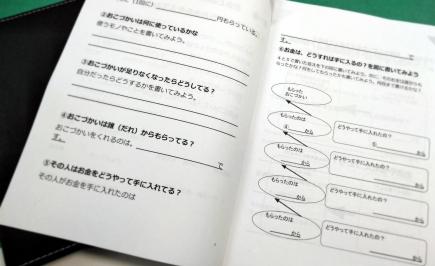 円もらっている。
②おこづかいは何に使っているかな
使うモノやことを書いてみよう。
③おこづかいが足りなくなったらどうしてる？
自分だったらどうするかを書いてみよう。
④おこづかいは誰（だれ）からもらってる？
おこづかいをくれるのは、
で
す。
⑤その人はお金をどうやって手に入れてる？
その人がお金を手に入れたのは
で
す。
⑥お金は、どうすれば手に入るの？を図に書いてみよう
もらった
おこづかい
もらったのは
④
から
どうやって手に入れたの？
⑤
から
もらったのは
から
どうやって手に入れたの？
から
もらったのは
から
どうやって手に入れたの？
から
もらったのは
から
どうやって手に入れたの？
から